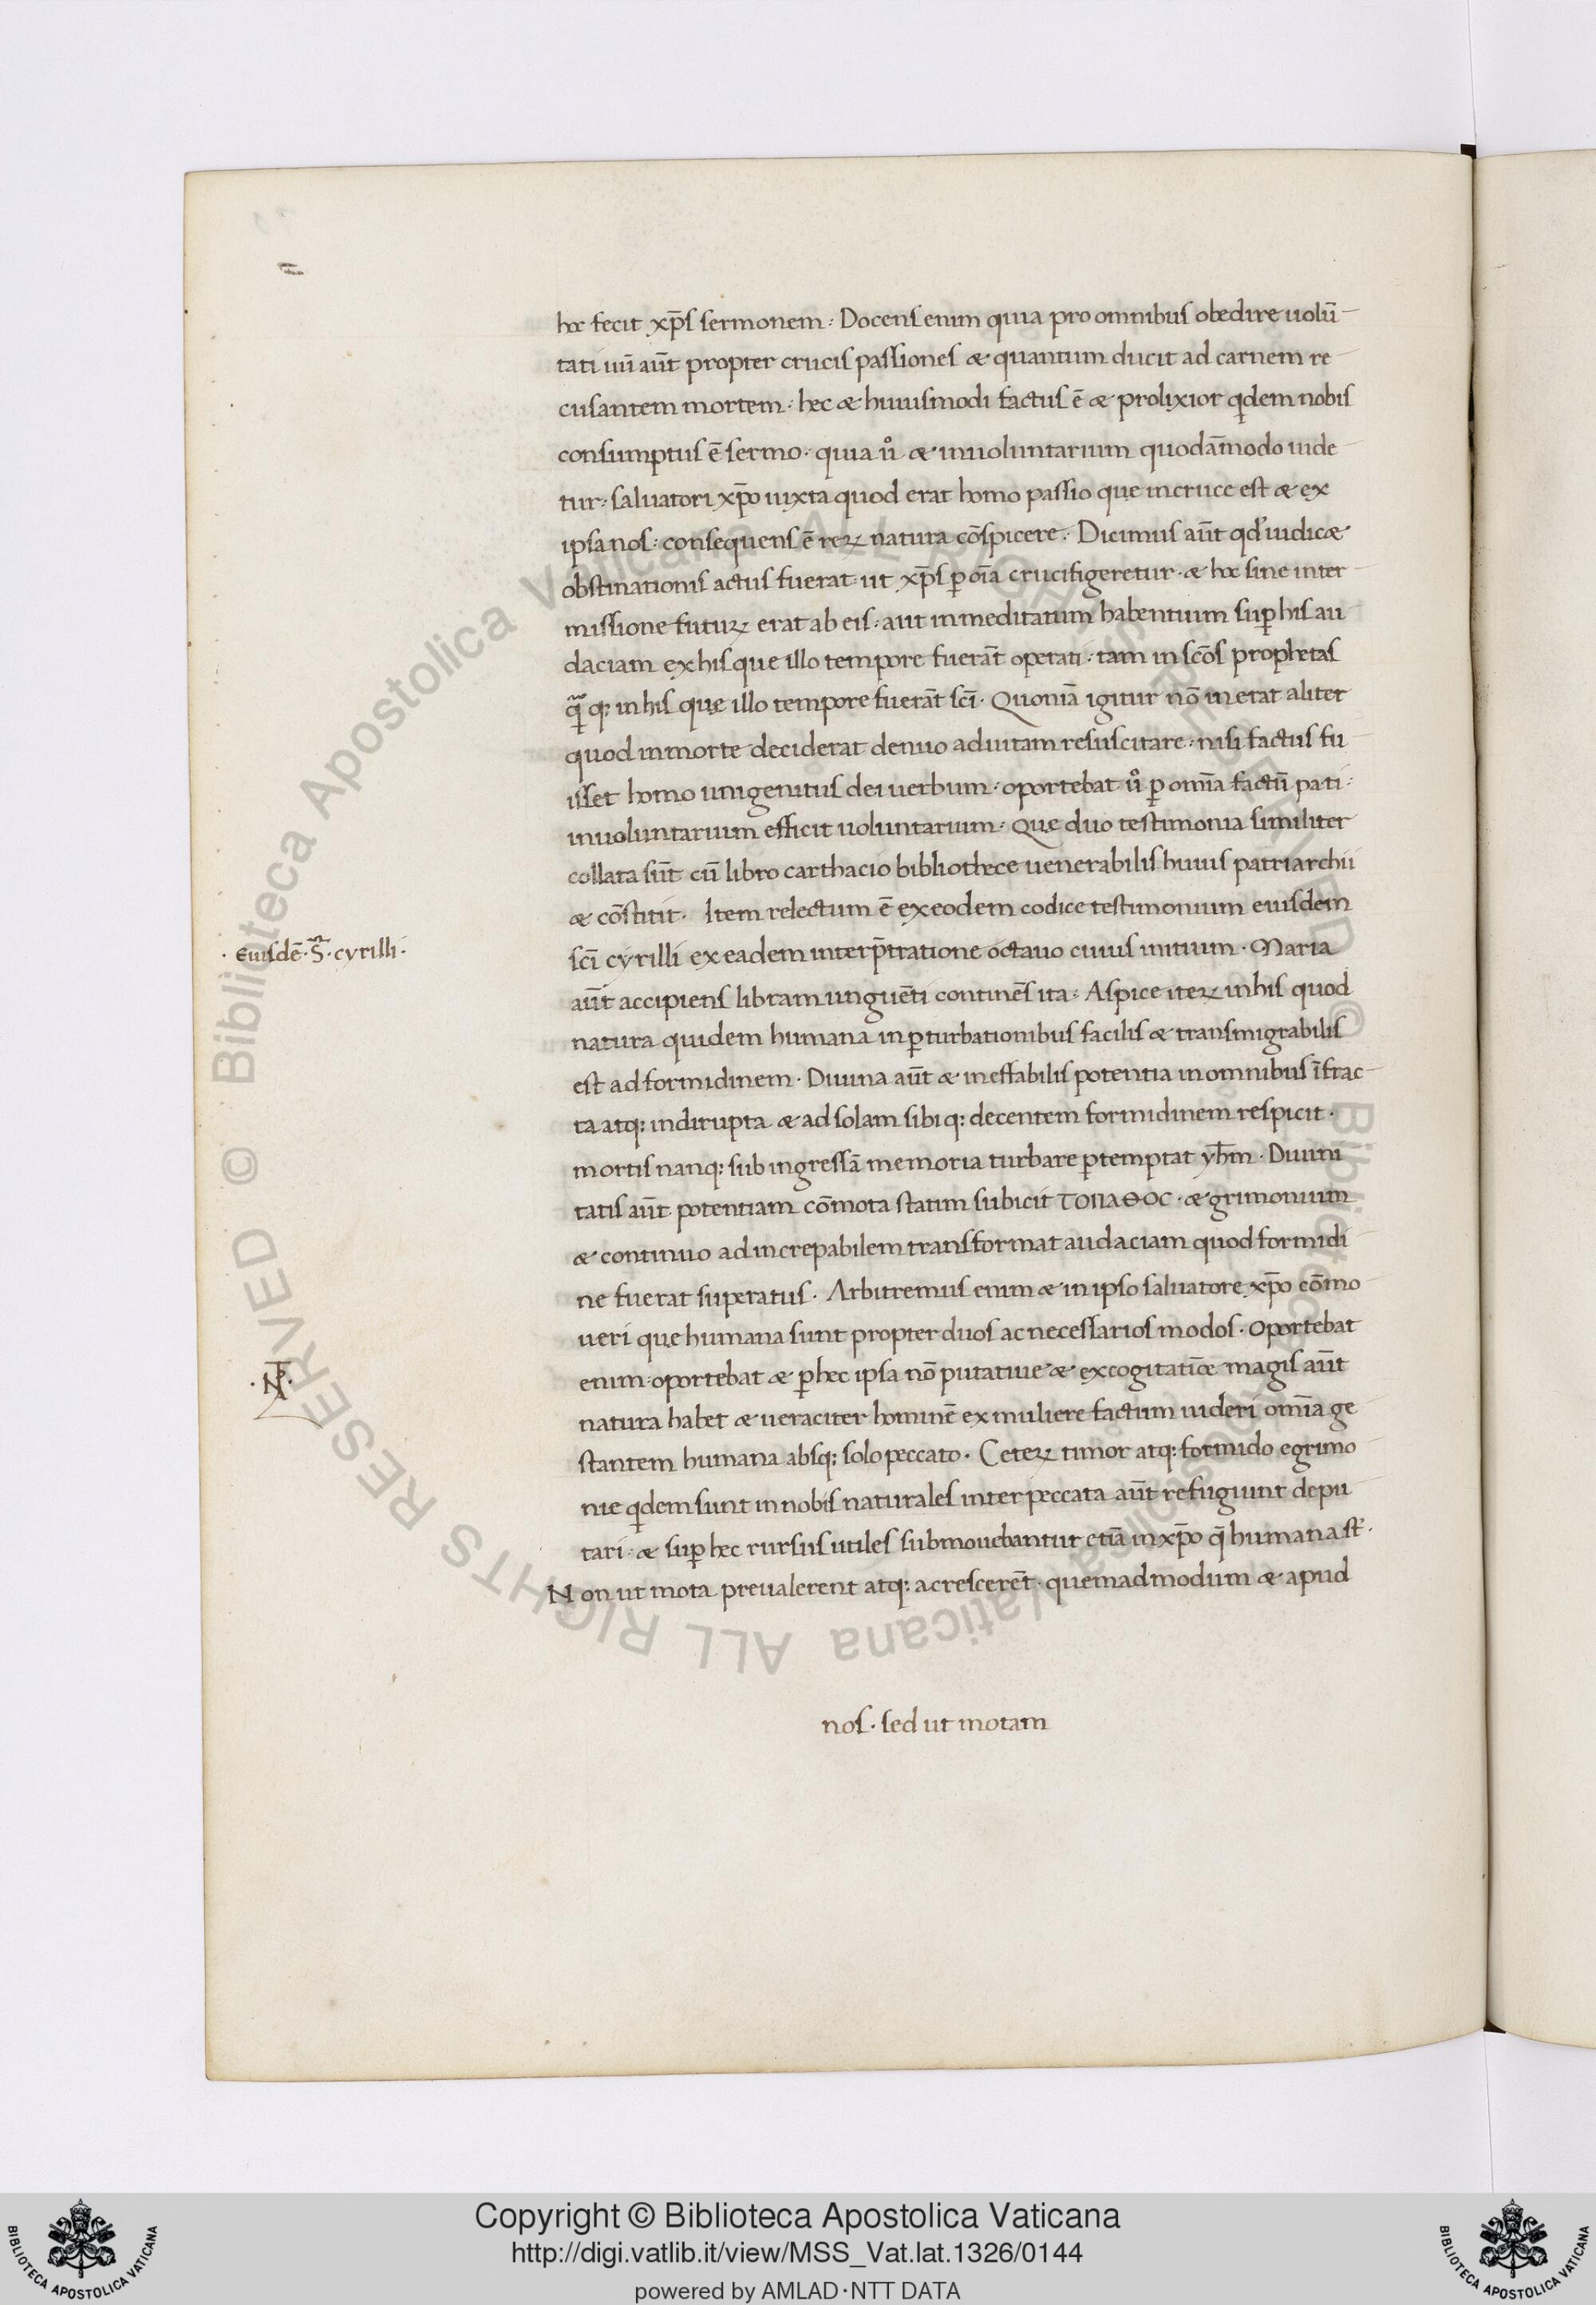 hoc fecit xp̄s sermonem: Docens enim quia pro omnibus obedire uolū
tati uñ aūt propter crucis passiones & quantum ducit ad carnem re
cusantem mortem: hec & huiusmodi factus ē & prolixior qͥdem nobis
consumptus ē sermo. quia uͦ & inuoluntarium quodāmodo uide
tur: saluatori xp̄o iuxta quod erat homo passio que in cruce est & ex
ipsa nos: consequens ē reꝝ natura cōspicere. Dicimus aūt qd̓ iudicæ
obstinationis actus fuerat ut xp̄s ꝑ oīa crucifigeretur. & hoc sine inter
missione futuꝝ erat ab eis: aut inmeditatum habentium suꝑ his au
daciam ex his que illo tempore fuerāt operati: tam in scōs prophetas
qͣꝫ in his que illo tempore fuerāt scī. Quoniā igitur nō inerat aliter
quod in morte deciderat denuo ad uitam resuscitare: nisi factus fu
isset homo unigenitus dei uerbum: oportebat uͦ ꝑ omīa factū pati:
inuoluntarium efficit uoluntarium. Que duo testimonia similiter
collata sūt cū libro carthacio bibliothece uenerabilis huius patriarchii
& cōstitit. Item relectum ē ex eodem codice testimonium eiusdem
· Eiusdē · S̄ · cyrilli ·
scī cyrilli ex eadem interp̄tratione octauo cuius initium. Maria
aūt accipiens libram unguēti continēs ita: Aspice iteꝝ in his quod
natura quidem humana in ꝑturbationibus facilis & transmigrabilis
est ad formidinem. Diuina aūt & ineffabilis potentia in omnibus īfrac
ta atq; indirupta & ad solam sibi q; decentem formidinem respicit.
mortis nanq; subingressā memoria turbare ꝑtemptat yh̄m. Diuini
tatis aūt potentiam cōmota statim subicit ΤΟΠΑΘΟC. ægrimonium
& continuo ad increpabilem transformat audaciam quod formidi
ne fuerat superatus. Arbitremus enim & in ipso saluatore xp̄o cōmo
ueri que humana sunt propter duos ac necessarios modos. Oportebat
enim oportebat & ꝑ hec ipsa nō putatiue & excogitatīe magis aūt
natura habet & ueraciter hominē ex muliere factum uideri omīa ge
stantem humana absq; solo peccato. Ceteꝝ timor atq; formido egrimo
nie qͥdem sunt in nobis naturales inter peccata aūt refugiunt depu
tari: & suꝑ hec rursus utiles submouebantur etiā in xp̄o q̄ humana st̓.
Non ut mota preualerent atq; acrescerēt. quemadmodum & apud
nos. sed ut motam
Copyright © Biblioteca Apostolica Vaticana
http://digi.vatlib.it/view/MSS_Vat.lat.1326/0144
powered by AMLAD·NTT DATA
BIBLIOTECA APOSTOLICA VATICANA
BIBLIOTECA APOSTOLICA VATICANA
© Biblioteca Apostolica Vaticana ALL RIGHTS RESERVED © Biblioteca Apostolica Vaticana ALL RIGHTS RESERVED